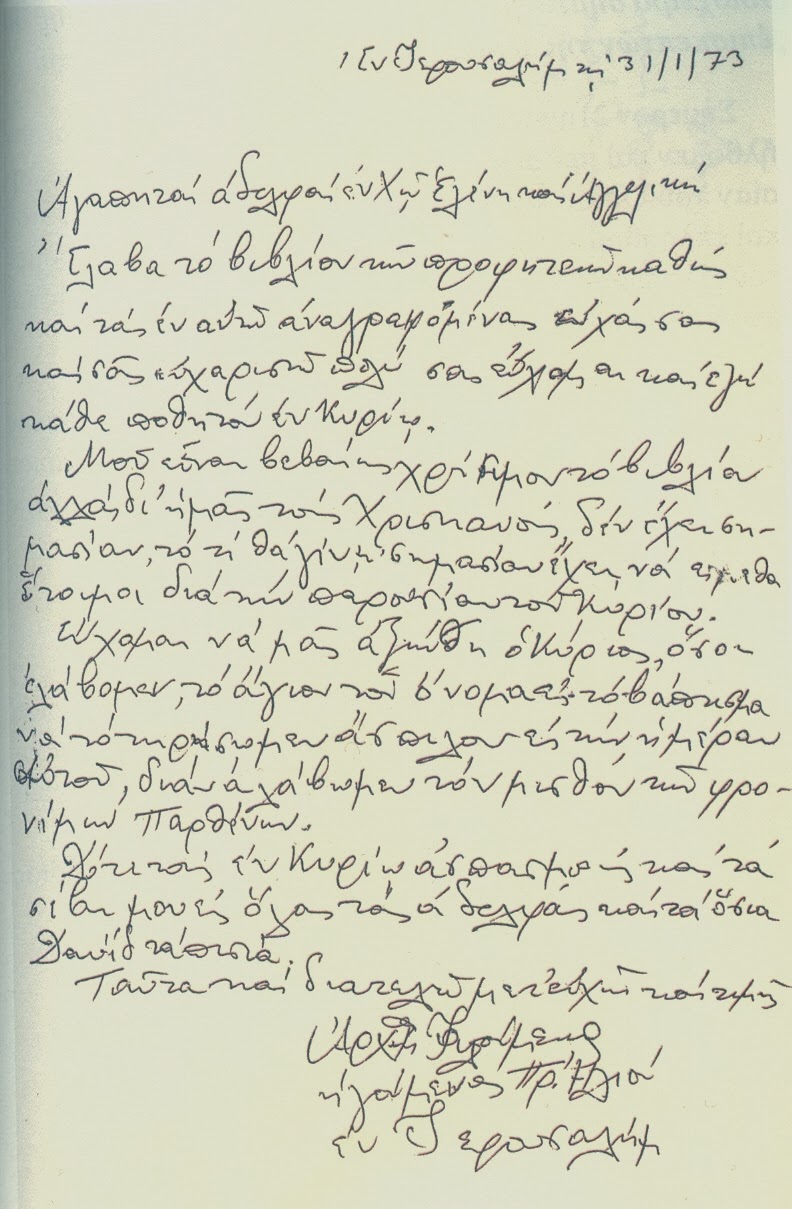 Ἐν Ἱερουσαλήμ τῇ 31/1/73
Ἀγαπηταί ἀδελφαί ἐν Χῷ Ἑλένη καί Ἀγγελική
Ἔλαβα τό βιβλίον τῶν προφητειῶν καθώς
καί τάς ἐν αὐτῷ ἀναγραφομένας εὐχάς σας
καί σᾶς εὐχαριστῶ πολύ σας εὔχομαι καί ἐγώ
κάθε ποθητόν ἐν Κυρίῳ.
Μοῦ εἶναι βεβαίως χρήσιμον τό βιβλίον
ἀλλά δι' ἡμᾶς τούς Χριστιανούς, δέν ἔχει ση-
μασίαν, τό τί θά γίνῃ, σημασίαν ἔχει, νά εἴμεθα
ἕτοιμοι διά τήν παρουσίαν τοῦ Κυρίου.
Εὔχομαι νά μᾶς ἀξιώσῃ ὁ Κύριος, ὅσοι
ἐλάβομεν, τό ἅγιον τοῦ ὄνομα εἰς τό βάπτισμα
νά τό τηρήσωμεν ἄσπιλον εἰς τήν ἡμέραν
Αὐτοῦ, διά νά λάβωμεν τόν μισθόν τῶν φρο-
νίμων Παρθένων.
Δότε τούς ἐν Κυρίῳ ἀσπασμούς καί τά
σέβη μου εἰς ὅλας τάς ἀδελφάς καί τά ὅσια
Δαυίδ τά πιστά.
Ταῦτα καί διατελῶ μετ' εὐχῶν καί τιμῆς
Ἀρχιμ. Φιλούμενος
ἡγούμενος Πρ. Ἠλιού
ἐν Ἱερουσαλήμ